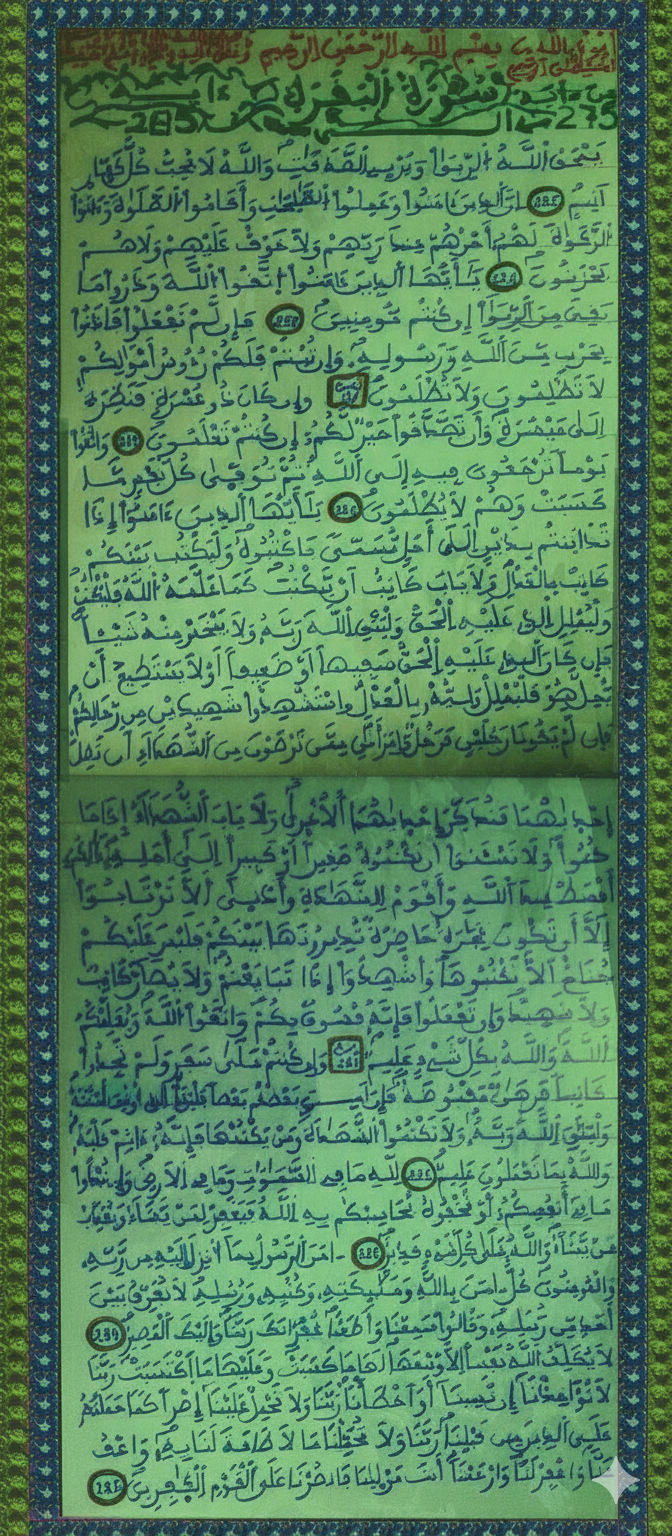 بسم الله الرحمن الرحيم
سورة البقرة
من ءاية 275 ... 285
يَمْحَقُ اللَّهُ الرِّبَوٰا وَيُرْبِي الصَّدَقَٰتِ وَاللَّهُ لَا يُحِبُّ كُلَّ كَفَّارٍ
اَثِيمٍ إِنَّ الَّذِينَ ءَامَنُوا وَعَمِلُوا الصَّٰلِحَٰتِ وَأَقَامُوا الصَّلَوٰةَ وَءَاتَوُا
الزَّكَوٰةَ لَهُمُ أَجْرُهُمْ عِندَ رَبِّهِمْ وَلَا خَوْفٌ عَلَيْهِمْ وَلَا هُمْ
يَحْزَنُونَ يَٰأَيُّهَا الَّذِينَ ءَامَنُوا اتَّقُوا اللَّهَ وَذَرُوا مَا
بَقِيَ مِنَ الرِّبَوٰا إِن كُنتُم مُّومِنِينَ فَإِن لَّمْ تَفْعَلُوا فَاذَنُوا
بِحَرْبٍ مِّنَ اللَّهِ وَرَسُولِهِ وَإِن تُبْتُمْ فَلَكُمْ رُءُوسُ أَمْوَالِكُمْ
لَا تَظْلِمُونَ وَلَا تُظْلَمُونَ وَإِن كَانَ ذُو عُسْرَةٍ فَنَظِرَةٌ
اِلَىٰ مَيْسُرَةٍ وَأَن تَصَّدَّقُوا خَيْرٌ لَّكُمُ إِن كُنتُمْ تَعْلَمُونَ وَاتَّقُوا
يَوْماً تُرْجَعُونَ فِيهِ إِلَى اللَّهِ ثُمَّ تُوَفَّىٰ كُلُّ نَفْسٍ مَّا
كَسَبَتْ وَهُمْ لَا يُظْلَمُونَ يَٰأَيُّهَا الَّذِينَ ءَامَنُوا إِذَا
تَدَايَنتُم بِدَيْنٍ اِلَىٰ أَجَلٍ مُّسَمّىً فَاكْتُبُوهُ وَلْيَكْتُب بَّيْنَكُمْ
كَاتِبٌ بِالْعَدْلِ وَلَا يَابَ كَاتِبٌ اَنْ يَّكْتُبَ كَمَا عَلَّمَهُ اللَّهُ فَلْيَكْتُبْ
وَلْيُمْلِلِ الَّذِي عَلَيْهِ الْحَقُّ وَلْيَتَّقِ اللَّهَ رَبَّهُ وَلَا يَبْخَسْ مِنْهُ شَيْئاً
فَإِن كَانَ الَّذِي عَلَيْهِ الْحَقُّ سَفِيهاً أَوْ ضَعِيفاً أَوْ لَا يَسْتَطِيعُ أَنْ
يُّمِلَّ هُوَ فَلْيُمْلِلْ وَلِيُّهُ بِالْعَدْلِ وَاسْتَشْهِدُوا شَهِيدَيْنِ مِن رِّجَالِكُمْ
فَإِن لَّمْ يَكُونَا رَجُلَيْنِ فَرَجُلٌ وَامْرَأَتَٰنِ مِمَّن تَرْضَوْنَ مِنَ الشُّهَدَاءِ ان تَضِلَّ
إِحْدَىٰهُمَا فَتُذَكِّرَ إِحْدَىٰهُمَا الْأُخْرَىٰ وَلَا يَابَ الشُّهَدَاءُ إِذَا مَا
دُعُوا وَلَا تَسْئَمُوا أَن تَكْتُبُوهُ صَغِيراً أَوْ كَبِيراً اِلَىٰ أَجَلِهِ ذَٰلِكُمُ
أَقْسَطُ عِندَ اللَّهِ وَأَقْوَمُ لِلشَّهَٰدَةِ وَأَدْنَىٰ أَلَّا تَرْتَابُوا
إِلَّا أَن تَكُونَ تِجَٰرَةٌ حَاضِرَةٌ تُدِيرُونَهَا بَيْنَكُمْ فَلَيْسَ عَلَيْكُمْ
جُنَاحٌ اَلَّا تَكْتُبُوهَا وَأَشْهِدُوا إِذَا تَبَايَعْتُمْ وَلَا يُضَارَّ كَاتِبٌ
وَلَا شَهِيدٌ وَإِن تَفْعَلُوا فَإِنَّهُ فُسُوقٌ بِكُمْ وَاتَّقُوا اللَّهَ وَيُعَلِّمُكُمُ
اللَّهُ وَاللَّهُ بِكُلِّ شَيْءٍ عَلِيمٌ وَإِن كُنتُمْ عَلَىٰ سَفَرٍ وَلَمْ تَجِدُوا
كَاتِباً فَرِهَٰنٌ مَّقْبُوضَةٌ فَإِنَ امِنَ بَعْضُكُم بَعْضاً فَلْيُؤَدِّ الَّذِي اوتُمِنَ أَمَٰنَتَهُ
وَلْيَتَّقِ اللَّهَ رَبَّهُ وَلَا تَكْتُمُوا الشَّهَٰدَةَ وَمَنْ يَّكْتُمْهَا فَإِنَّهُ ءَاثِمٌ قَلْبُهُ
وَاللَّهُ بِمَا تَعْمَلُونَ عَلِيمٌ لِّلَّهِ مَا فِي السَّمَٰوَٰتِ وَمَا فِي الْأَرْضِ وَإِن تُبْدُوا
مَا فِي أَنفُسِكُمُ أَوْ تُخْفُوهُ يُحَاسِبْكُم بِهِ اللَّهُ فَيَغْفِرْ لِمَنْ يَّشَاءُ وَيُعَذِّبْ
مَنْ يَّشَاءُ وَاللَّهُ عَلَىٰ كُلِّ شَيْءٍ قَدِيرٌ ءَامَنَ الرَّسُولُ بِمَا أُنزِلَ إِلَيْهِ مِن رَّبِّهِ
وَالْمُومِنُونَ كُلٌّ ءَامَنَ بِاللَّهِ وَمَلَٰئِكَتِهِ وَكُتُبِهِ وَرُسُلِهِ لَا نُفَرِّقُ بَيْنَ
أَحَدٍ مِّن رُّسُلِهِ وَقَالُوا سَمِعْنَا وَأَطَعْنَا غُفْرَانَكَ رَبَّنَا وَإِلَيْكَ الْمَصِيرُ
لَا يُكَلِّفُ اللَّهُ نَفْساً اِلَّا وُسْعَهَا لَهَا مَا كَسَبَتْ وَعَلَيْهَا مَا اكْتَسَبَتْ رَبَّنَا
لَا تُوَاخِذْنَا إِن نَّسِينَا أَوَ اخْطَأْنَا رَبَّنَا وَلَا تَحْمِلْ عَلَيْنَا إِصْراً كَمَا حَمَلْتَهُ
عَلَى الَّذِينَ مِن قَبْلِنَا رَبَّنَا وَلَا تُحَمِّلْنَا مَا لَا طَاقَةَ لَنَا بِهِ وَاعْفُ
عَنَّا وَاغْفِرْ لَنَا وَارْحَمْنَا أَنتَ مَوْلَىٰنَا فَانصُرْنَا عَلَى الْقَوْمِ الْكَٰفِرِينَ